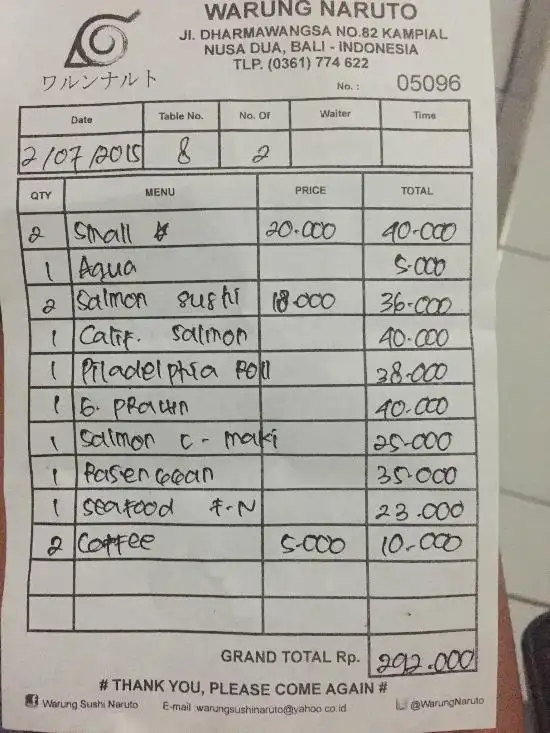 WARUNG NARUTO
Jl. DHARMAWANGSA NO.82 KAMPIAL
NUSA DUA, BALI - INDONESIA
TLP. (0361) 774 622
ワルンナルト
No. : 05096
Date Table No. No. Of Waiter Time
2/07/2015 8 2
QTY MENU PRICE TOTAL
2 Small 20.000 40.000
1 Aqua 5.000
2 Salmon sushi 18.000 36.000
1 Calif. salmon 40.000
1 Piladelphia Roll 38.000
1 E. prawn 40.000
1 Salmon C - maki 25.000
1 Rasengan 35.000
1 Seafood F-N 23.000
2 Coffee 5.000 10.000
GRAND TOTAL Rp. 292.000
# THANK YOU, PLEASE COME AGAIN #
Warung Sushi Naruto E-mail :warungsushinaruto@yahoo.co.id @WarungNaruto